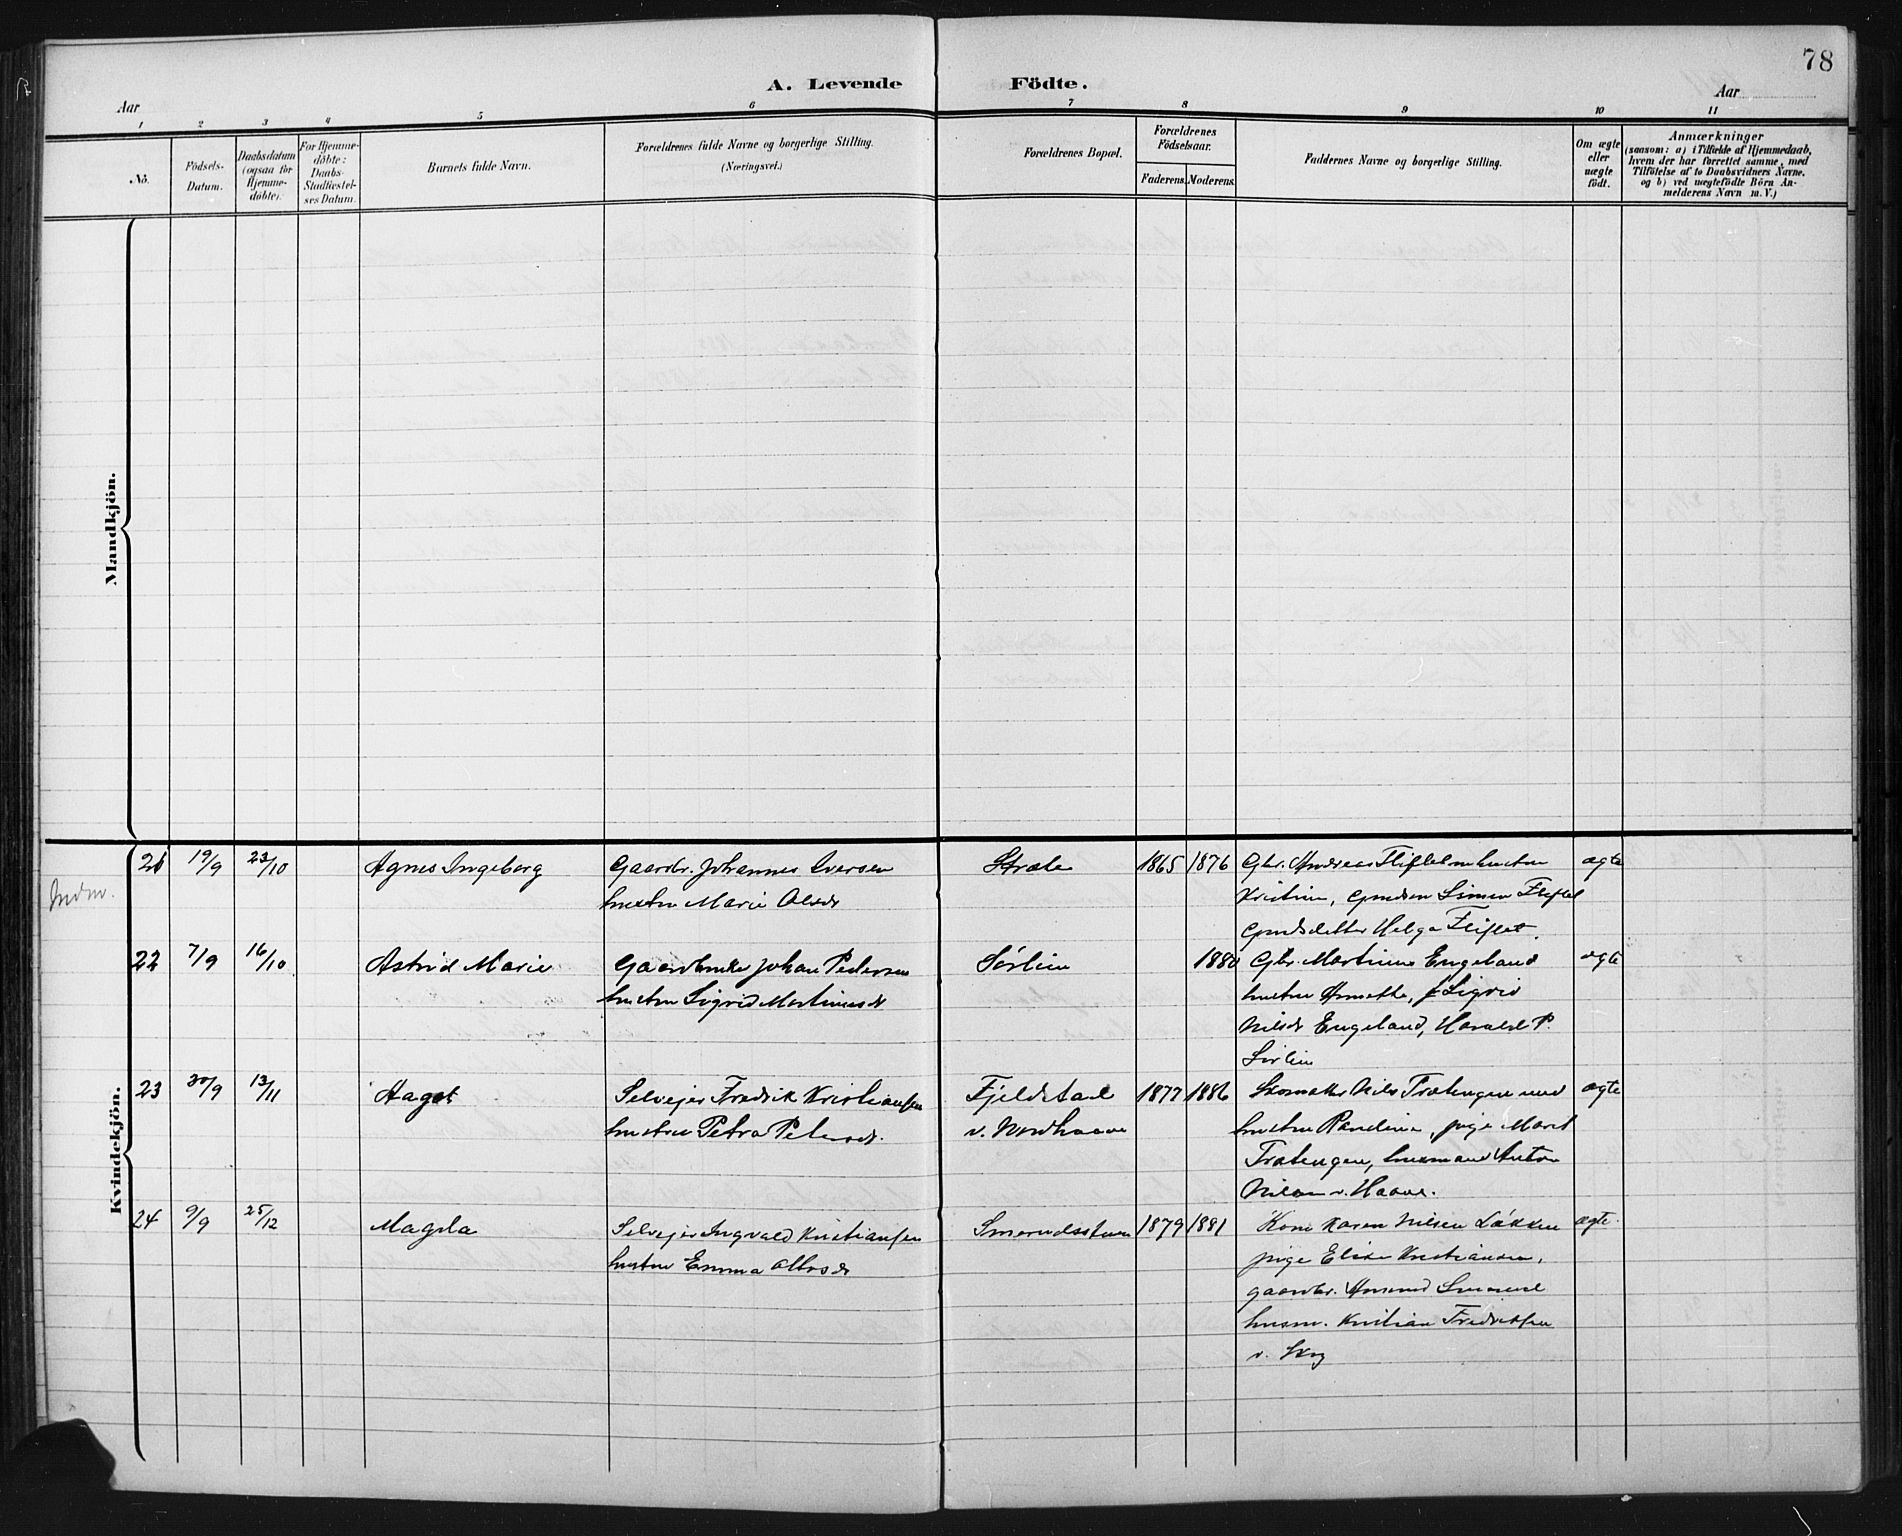 78
A. Levende Födte.
Aar
Aar
1 2 3 4 5 6 7 8 9 10 11
No.
Födsels-Datum.
Daabsdatum (ogsaa for Hjemme-döbte).
For Hjemme-döbte: Daabs-Stadfæstel-ses Datum.
Barnets fulde Navn.
Forældrenes fulde Navne og borgerlige Stilling. (Næringsvei.)
Forældrenes Bopæl.
Forældrenes Födselsaar.
Faderens. Moderens.
Faddernes Navne og borgerlige Stilling.
Om ægte eller uægte födt.
Anmærkninger
(saasom: a) i Tilfælde af Hjemmedaab, hvem der har forrettet samme, med Tilföielse af to Daabsvidners Navne. og b) ved uægtefödte Börn An-melderens Navn m. V.)
Mandkjön.
Kvindekjön.
21 19/9 23/10 Agnes Ingeborg Gaardbr. Johannes Iversen Stræte 1865 1876 Gbr. Andreas Fliflet m hustru ægte
hustru Marie Olsdr Kristine, Simen Fliflet
Helga Fliflet.
22 7/9 16/10 Astrid Marie Gaardbruker Johan Pedersen Sørlien 1880 Gbr. Martinus Engeland ægte
hustru Sigrid Martinusdr hustru Annette, Sigrid
Nilsdr Engeland, Harald P.
Sørlien
23 30/9 13/11 Aagot Selvejer Fredrik Kristiansen Fjeldstad 1877 1886 Skomaker Nils Trætengen med ægte
hustru Petra Petersdr. v. Nordhaave hustru Randine, pige Marit
Trætengen, husmand Anton
Nilsen v. Haave.
24 9/9 25/12 Magda Selvejer Ingvald Kristiansen Smerudsstuen 1879 1881 Kone Karen Nilsen Løkken ægte.
hustru Emma Ottosdr pige Elise Kristiansen,
gaardbr. Amund Smerud
husm. Kristian Fredriksen
v. Skog